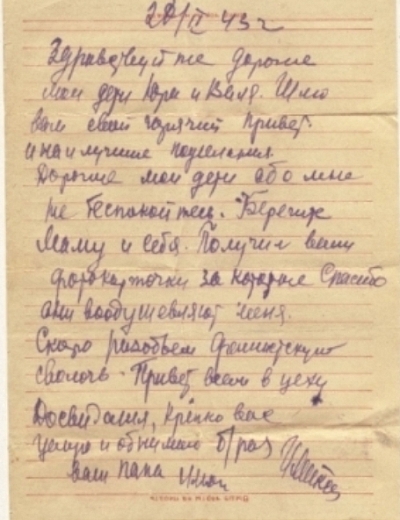 20/II 43 г
Здравствуйте дорогие
мои дети Юра и Валя. Шлю
вам свой горячий привет
и наилучшие пожелания.
Дорогие мои дети обо мне
не беспокойтесь. Берегите
Маму и себя. Получил ваши
фотокарточки за которые Спасибо
они воодушевляют меня.
Скоро разобьем фашистскую
сволочь. Привет всем в цеху
Досвидания, крепко вас
целую и обнимаю б/раз
ваш папа